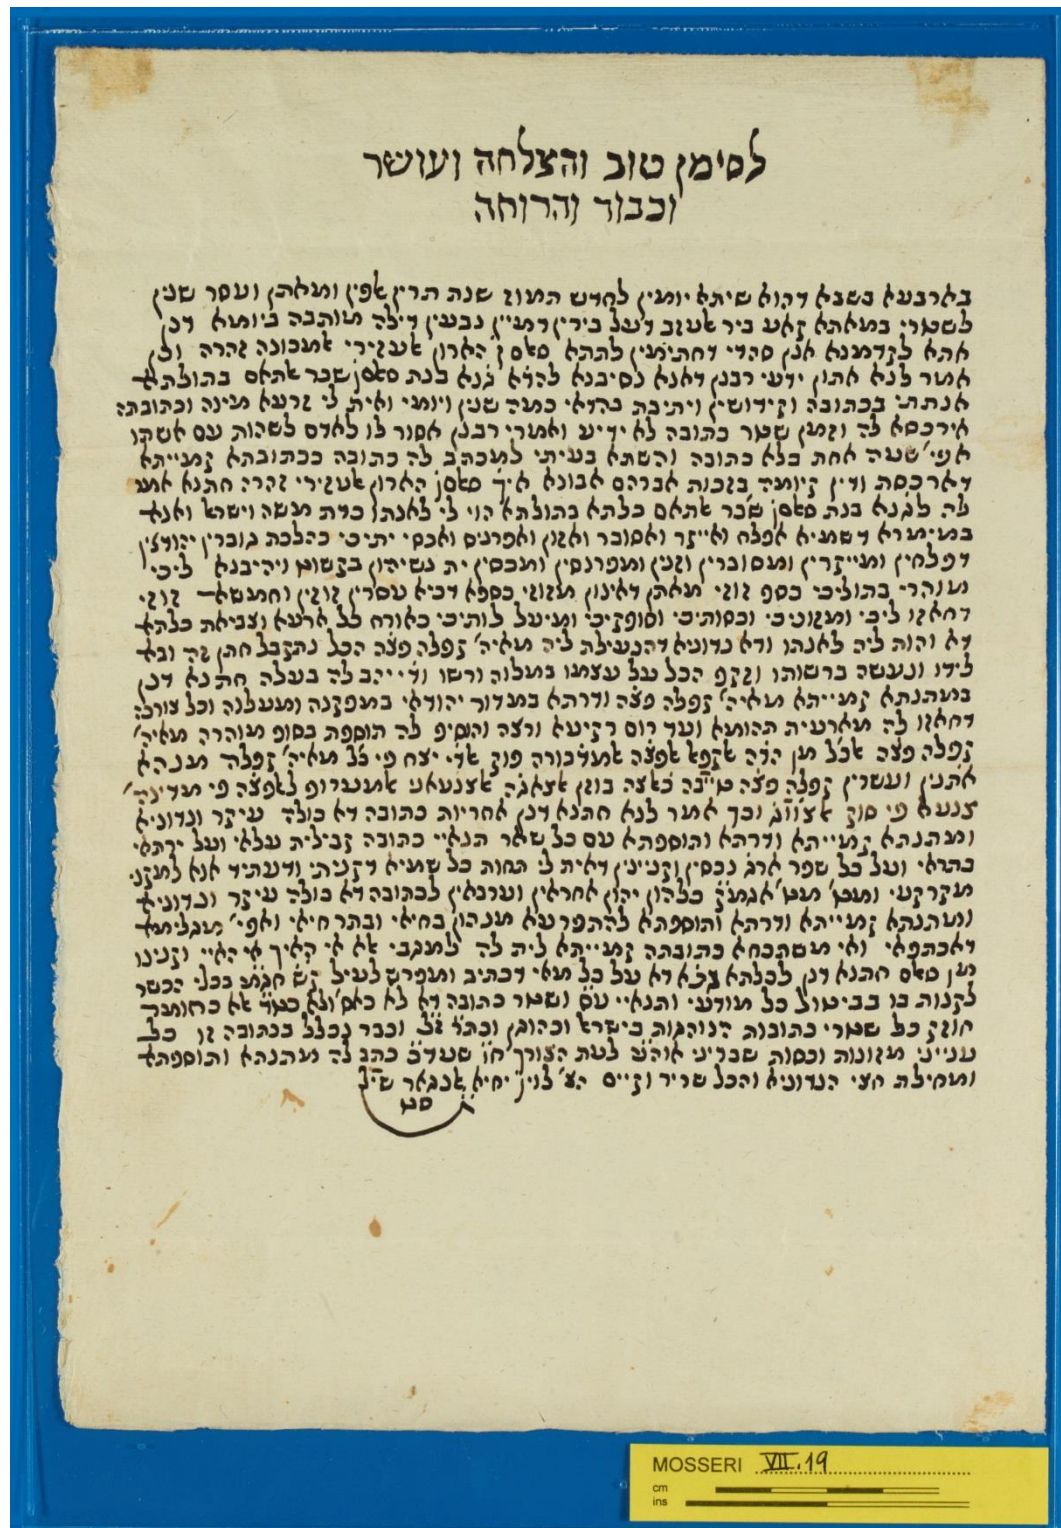 לסימן טוב והצלחה ועושר
וכבוד והרוחה
בארבעא בשבא דהוא שיתא יומין לחדש תמוז שנת תרין אלפין ומאתן ועסר שנין
לשטרי במאתא קאע ביר אלעזב דעל בירין דמיין נבעין דילה מותבה ביומא דנן
אתא לקדמנא אנן סהדי דחתימין לתתא סאלם הארון אלעזירי אלמכונה זהרה וכן
אמר לנא אתון ידעי רבנן דאנא נסיבנא להדא בנת סאלם שכר אלתאם בתולתא
אנתתי בכתובה וקידושין ויתיבת בהדאי כמה שנין ויומי ואית לי זרעא מינה וכתובתה
אירכסא לה וזמן שטר כתובה לא ידיע ואמרי רבנן אסור לו לאדם לשהות עם אשתו
אפי׳ שעה אחת בלא כתובה והשתא בעיתי למכתב לה כתובה ככתובתא קמייתא
דארכסת ודין קיומה בזכות אברהם אבונא איך סאלם הארון אלעזירי זהרה חתנא אמר
לה בנת סאלם שכר אלתאם כלתא בתולתא הוי לי לאנתו כדת משה וישראל ואנא
במימרא דשמיא אפלח ואייקר ואסובר ואזון ואפרנס ואכסי יתיכי כהלכת גוברין יהודאין
דפלחין ומייקרין ומסוברין וזנין ומפרנסין ומכסין ית נשיהון בקשוט ויהיבנא ליכי
מוהרי בתוליכי כסף זוזי מאתן דאינון מזוזי כספא דכיא עסרין וזוזין וחמשא זוזי
דחאזו ליכי ומזוניכי וכסותיכי וסופקיכי ומיעל לותיכי כאורח כל ארעא וצביאת כלתא
דא והות ליה לאנתו ודא נדוניא דהנעילת ליה מאיה׳ קפלה פצה הכל נתקבל חתן זה ובא
לידו ונעשה ברשותו וזקף הכל על עצמו במלוה ורשו ודי יהב לה בעלה חתנא דנן
במתנתא קמייתא מאיה׳ קפלה פצה ודרתא במדור יהודאי במפקנה ומעלנה וכל צורכה
דחאזו לה מארעית תהומא ועד רום רקיעא ורצה והוסיף לה תוספת בסוף מוהרה מאיה׳
קפלה פצה אלכל מן הדה אלקפל אלפצה אלמדכורה פוק אלדי יצח פי כל מאיה׳ קפלה מנהא
אתנין ועשרין קפלה פצה טייבה כאלצה בוזן אלצאגה אלצנעאני אלמערוף לאלפצה פי מדינה׳
צנעא פי סוק וכך אמר לנא חתנא דנן אחריות כתובה דא כולה עיקר ונדוניא
ומתנתא קמייתא ודרתא ותוספתא עם כל שאר תנאיי כתובה קבילית עלאי ועל ירתאי
בתראי ועל כל שפר ארג נכסין וקניינין דאית לי תחות כל שמיא דקניתי ודעתיד אנא למקני
מקרקעי ומט׳ כלהון יהון אחראין וערבאין לכתובה דא כולה עיקר ונדוניא
ומתנתא קמייתא ודרתא ותוספתא להתפרעא מנהון בחיאי ובתר חיאי ואפי׳ מגלימא
דאכתפאי ואי משתכחא כתובתה קמייתא לית לה למגבי אלא אי האיך אי האיי וקנינו
מן סאלם חתנא דנן לכלתא דא על כל מאי דכתיב ומפרש לעיל בכלי הכשר
לקנות בו בביטול כל מודעי ותנאיי ושטר כתובה דא לא כאס׳ ולא כטד אלא כחומר
חוזק כל שטרי כתובות הנוהגות בישראל וכהוגן וכבר נכלל בכתובה זו כל
ענייני מזונות וכסות שבריני לעת הצורך כתב לה מתנתא ותוספתא
ומחילת חצי הנדוניא והכל שריר וקיים הצ׳ יחיא
MOSSERI VII.19
cm
ins